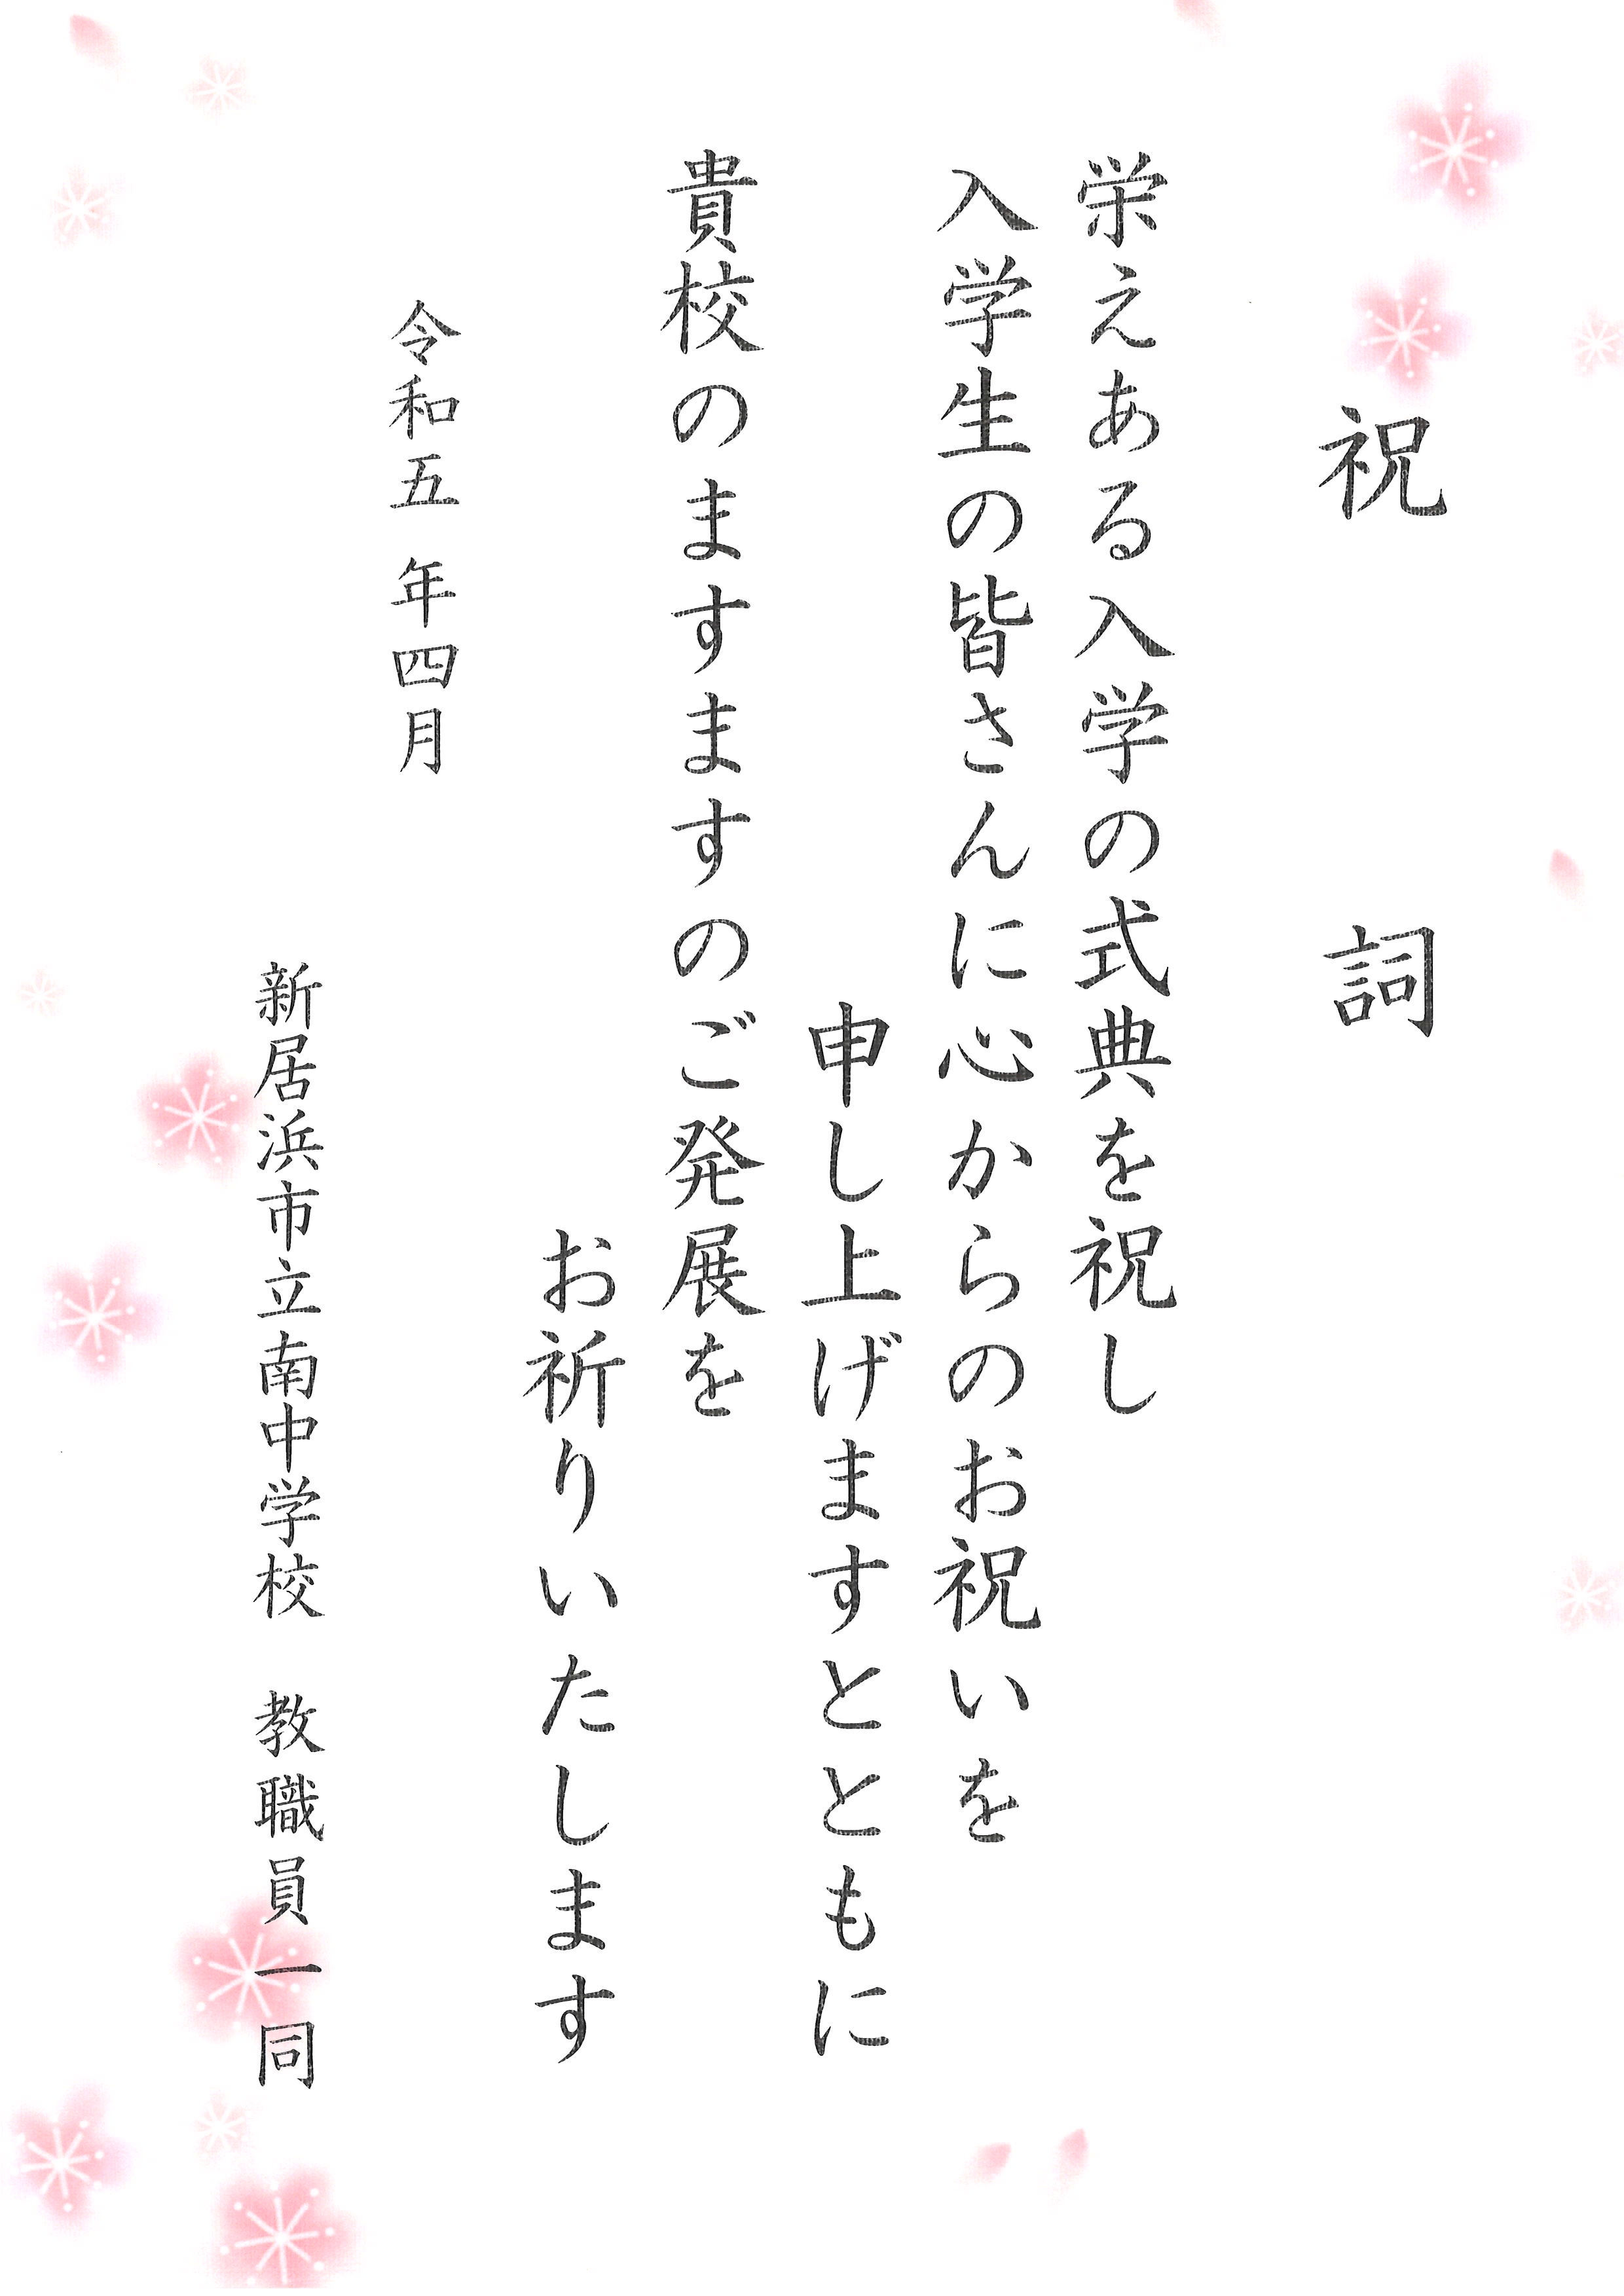 祝詞
栄えある入学の式典を祝し
入学生の皆さんに心からのお祝いを
申し上げますとともに
貴校のますますのご発展を
お祈りいたします
令和五年四月
新居浜市立南中学校　教職員一同